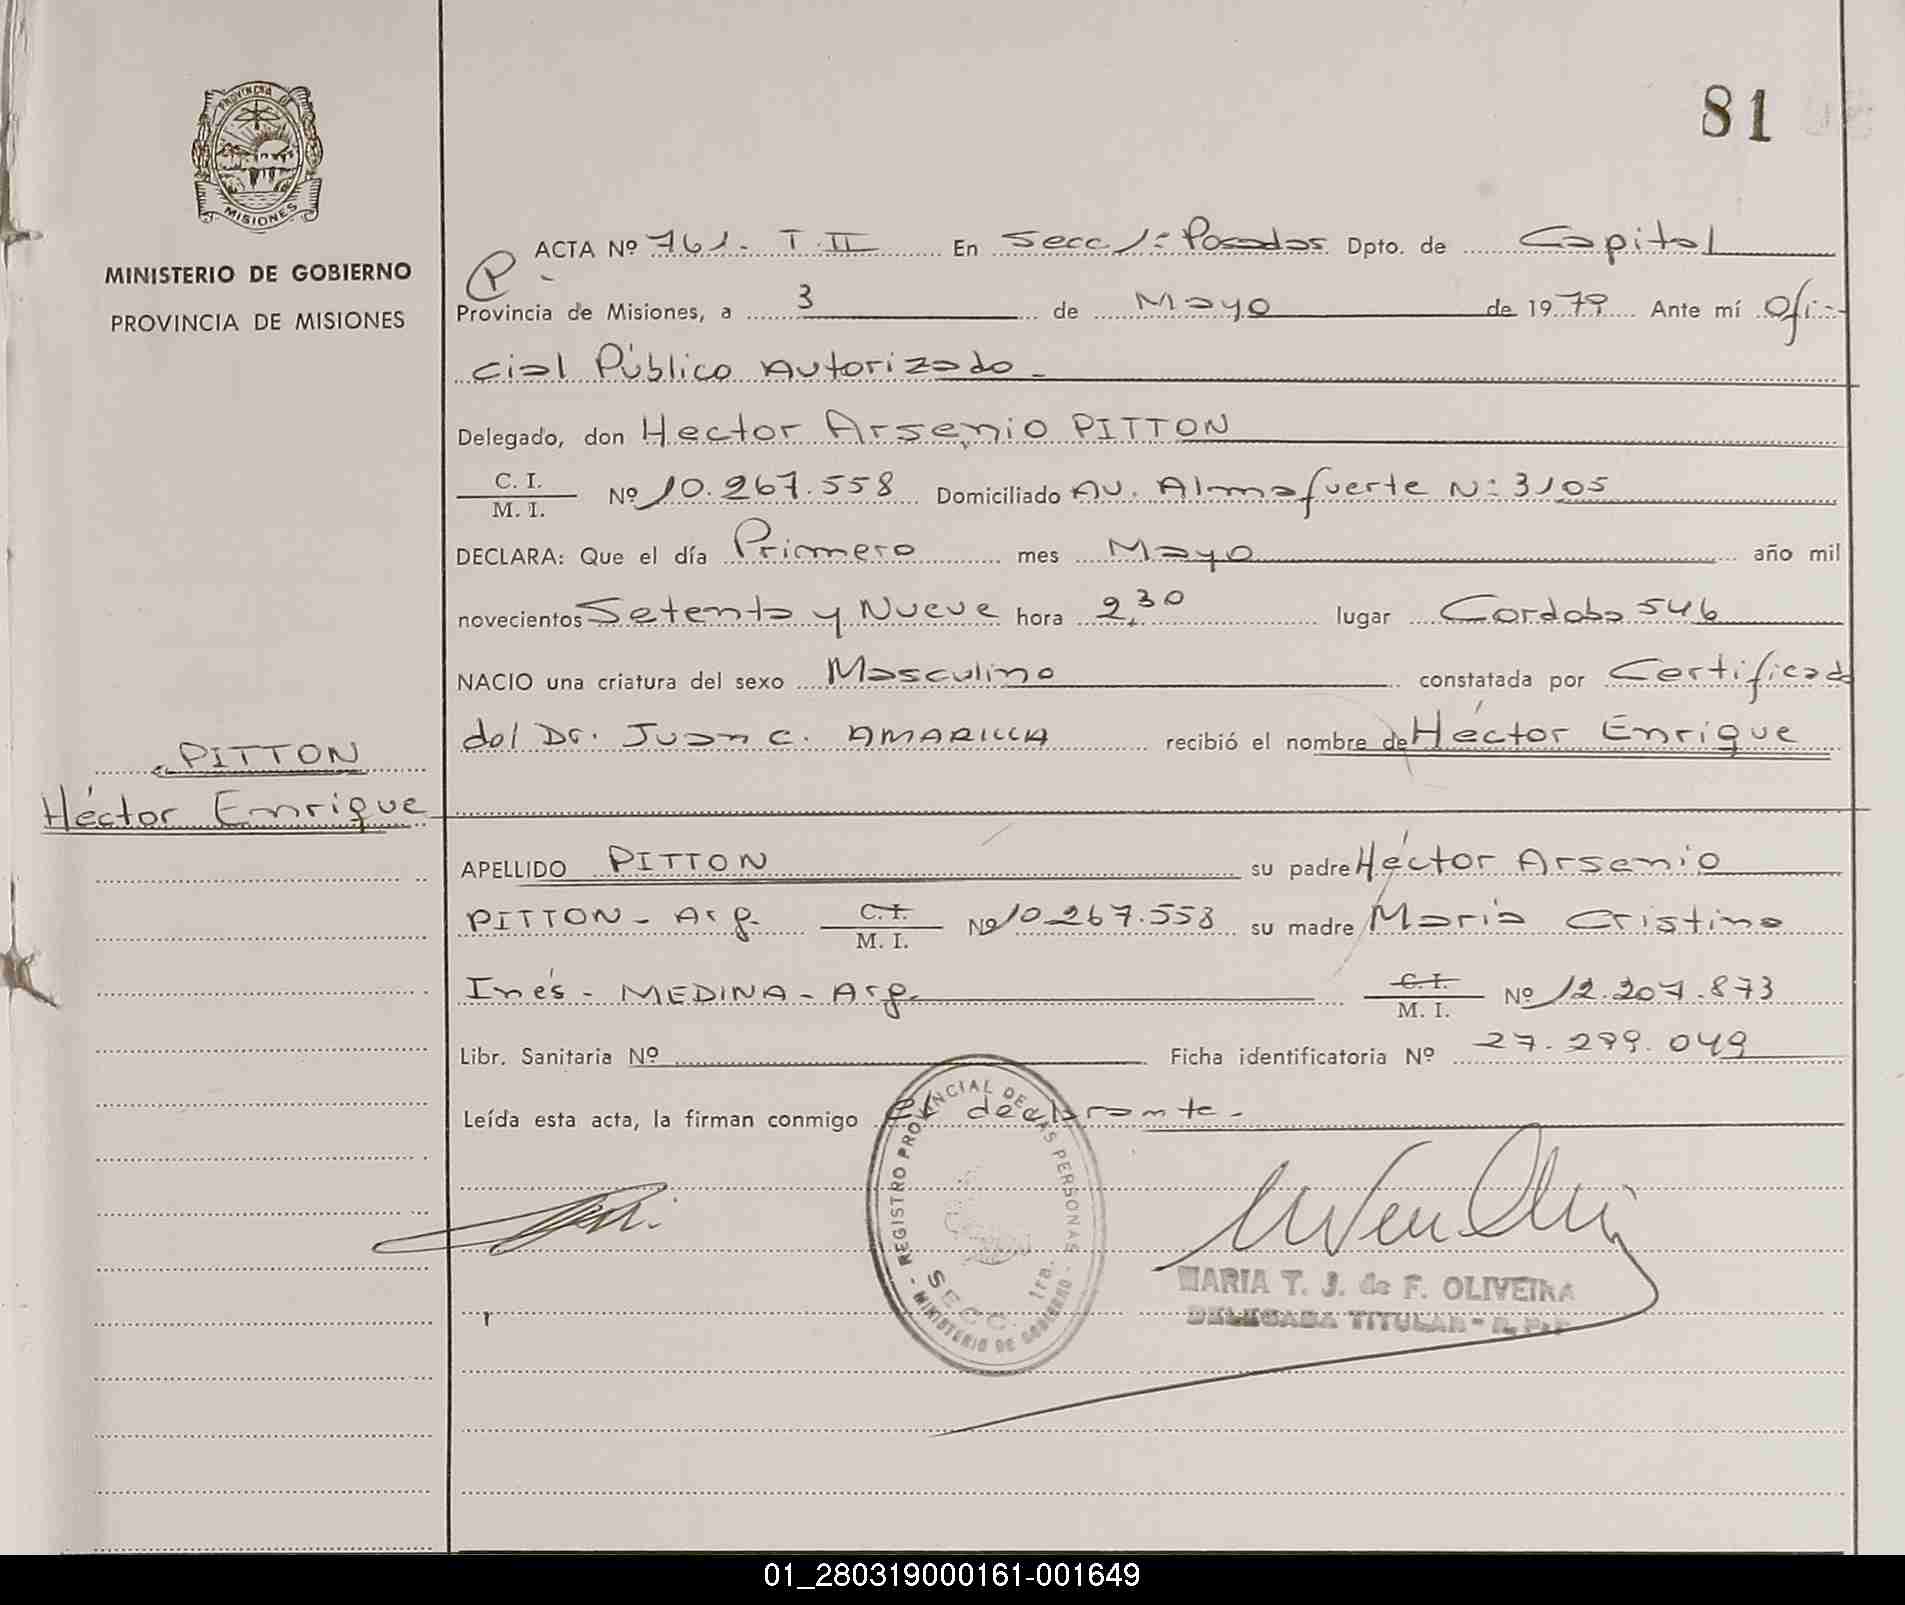 81
PROVINCIA DE
MISIONES
MINISTERIO DE GOBIERNO
PROVINCIA DE MISIONES
ACTA Nº 761. T. II En Secc 1ª Posadas Dpto. de Capital
P
Provincia de Misiones, a 3 de Mayo de 1979 Ante mí Ofi-
cial Público Autorizado -
Delegado, don Hector Arsenio PITTON
C. I.
M. I. Nº 10.267.558 Domiciliado AV. Almafuerte Nº 3105
DECLARA: Que el día Primero mes Mayo año mil
novecientos Setenta y Nueve hora 2,30 lugar Cordoba 546
NACIO una criatura del sexo Masculino constatada por Certificado
del Dr. Juan C. AMARILLA recibió el nombre de Héctor Enrique
PITTON
Héctor Enrique
APELLIDO PITTON su padre Héctor Arsenio
PITTON - Arg. C. I.
M. I. Nº 10.267.558 su madre María Cristina
Inés - MEDINA - Arg. C. I.
M. I. Nº 12.207.873
Libr. Sanitaria Nº Ficha identificatoria Nº 27.299.049
Leída esta acta, la firman conmigo el declarante -
- REGISTRO PROVINCIAL DE LAS PERSONAS -
MINISTERIO DE GOBIERNO
SECC. 1ra.
MARIA T. J. de F. OLIVEIRA
DELEGADA TITULAR - R. P. P.
01_280319000161-001649